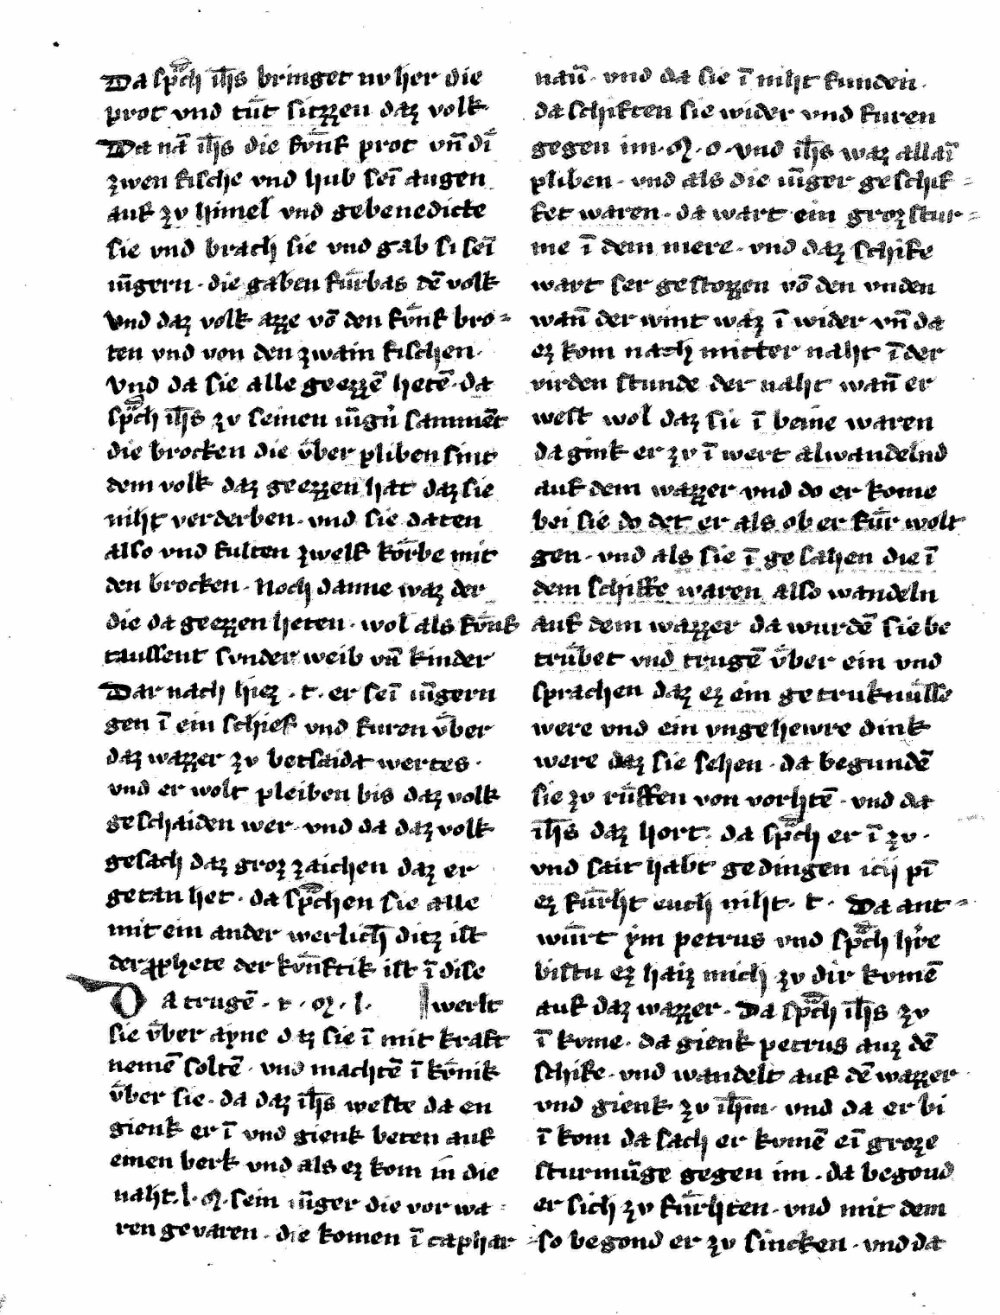 Da sp̄ch ih̄s bringet nv her die
prot vnd tu̇t sitzzen daz volk
Da nā ih̄s die fvnf prot vn̄ di
zwen fische vnd hub sei augen
auf zv himel vnd gebenedicte
sie vnd brach sie vnd gab si seī
iūgern · die gaben fūrbas dē volk
vnd daz volk azze vō den fvnf bro⸗
ten vnd von den zwain fischen ·
Vnd da sie alle geezzē hetē · da
sp̄ch ih̄s zv seinen iūgn̄ sammēt
die brocken die vber pliben sint
dem volk daz geezzen hat daz sie
niht verderben · vnd sie daten
also vnd fulten zwelf korbe mit
den brocken · Noch danne waz der
die da geezzen heten · wol als fvnf
taussent svnder weib vn̄ kinder
Dar nach hiez · t · er seī iūgern
gen ī ein schief vnd furen vber
daz wazzer zv betsaida wertes ·
vnd er wolt pleiben bis daz volk
geschaiden wer · vnd da daz volk
gesach daz groz zaichen daz er
getan het · da sp̄chen sie alle
mit ein ander werlich ditz ist
der ꝓphete der kvnftik ist ī dise
Da trugē · t · m · l · werlt
sie vber ayne daz sie ī mit kraft
nemē soltē · vnd machtē ī kvnik
vber sie · da daz ih̄s weste da en
gienk er ī vnd gienk beten auf
einen berk vnd als ez kom in die
naht · l · m · sein iūger die vor wa
ren gevaren · die komen ī caphar
naū · vnd da sie ī niht funden ·
da schiften sie wider vnd furen
gegen im · m · o · vnd ih̄s waz allaī
pliben · vnd als die iūger geschif⸗
fet waren · da wart ein groz stur⸗
me ī dem mere · vnd daz schife
wart ser gestozzen vō den vnden
wan̄ der wint waz ī wider vn̄ da
ez kom nach mitter naht ī der
virden stunde der naht wan̄ er
west wol daz sie ī beine waren
da gink er zv ī wert alwandelnd
auf dem wazzer vnd do er kome
bei sie do det er als ob er fur wolt
gen · vnd als sie ī gesahen die ī
dem schiffe waren also wandeln
auf dem wazzer da wurdē sie be
trubet vnd trugē vber ein vnd
sprachen daz ez ein getruknusse
were vnd ein vngehewre dink
were daz sie sehen · da begundē
sie zv ruffen von vorhtē · vnd da
ih̄s daz hort · da sp̄ch er ī zv ·
vnd sait habt gedingen ich pī
ez furht euch niht · t · Da ant⸗
wurt ym petrus vnd sp̄ch hr̄e
bistu ez haiz mich zv dir komē
auf daz wazzer · Da sp̄ch ih̄s zv
ī kome · da gienk petrus auz dē
schife · vnd wandelt auf dē wazzer ·
vnd gienk zv ih̄m · vnd da er bi
ī kom da sach er komē eī groze
sturmūge gegen im · da begond
er sich zv furhten · vnd mit dem
so begond er zv sincken · vnd da